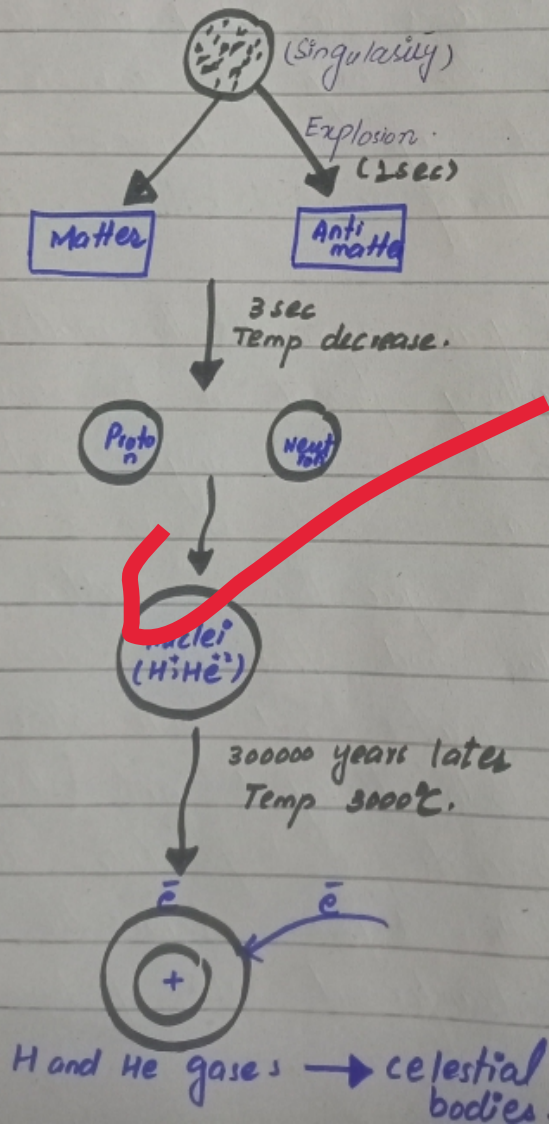 (Singularity)
Explosion.
(1sec)
Matter
Anti
matte
3sec
Temp decrease.
Proto
n
Neut
ron
Nuclei
(H⁺, He⁺²)
300000 years later
Temp 3000°C.
ē
ē
+
H and He gases → celestial
bodies.